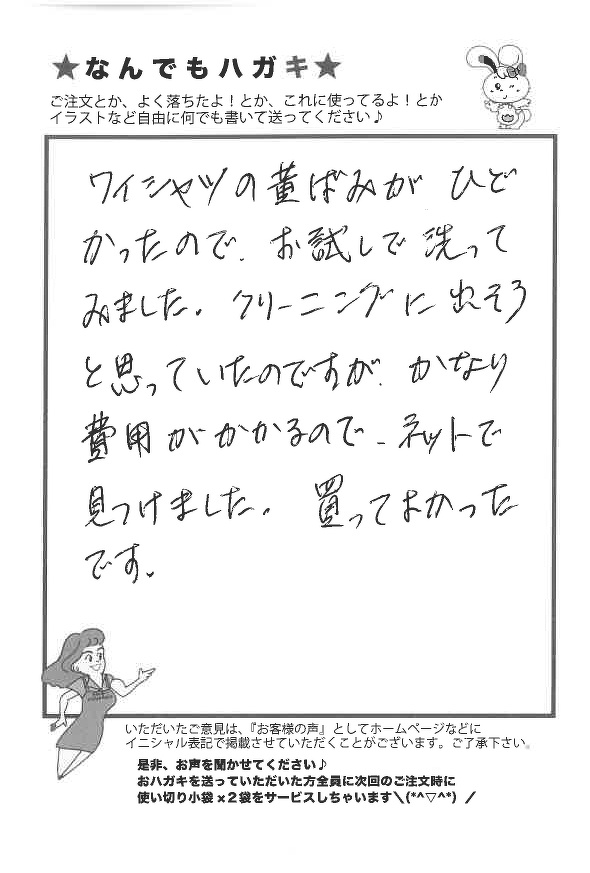 ★なんでもハガキ★
ご注文とか、よく落ちたよ！とか、これに使ってるよ！とか
イラストなど自由に何でも書いて送ってください♪
ワイシャツの黄ばみが ひど
かったので、お試しで洗って
みました。クリーニングに出そう
と思っていたのですが、かなり
費用がかかるので、ネットで
見つけました。買ってよかった
です。
いただいたご意見は、『お客様の声』としてホームページなどに
イニシャル表記で掲載させていただくことがございます。ご了承下さい。
是非、お声を聞かせてください♪
おハガキを送っていただいた方全員に次回のご注文時に
使い切り小袋×2袋をサービスしちゃいます＼(*^▽^*)／